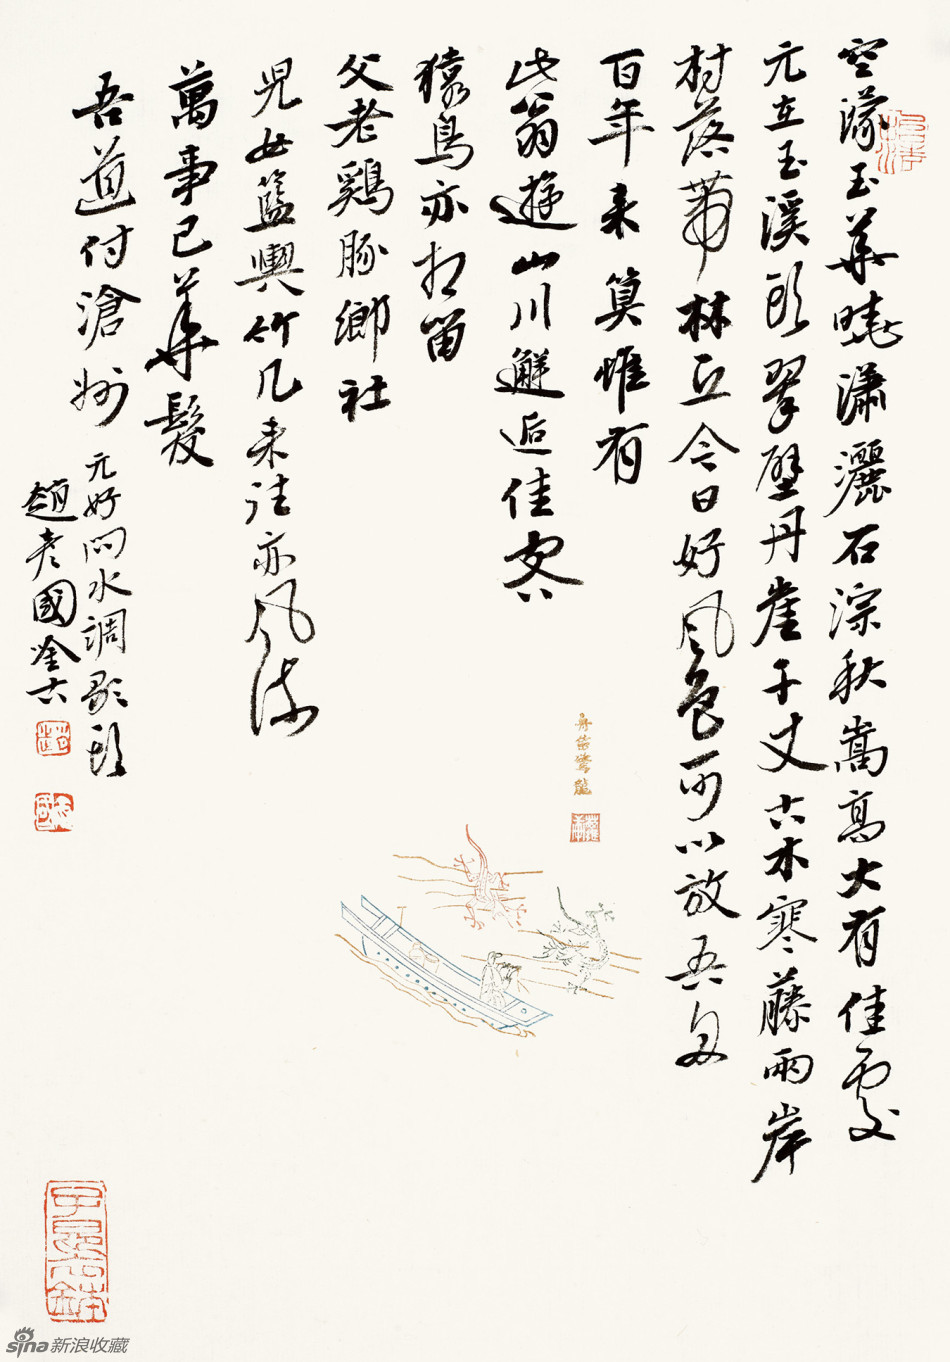 空濛玉華曉瀟灑石淙秋嵩高大有佳處
元在玉溪頭翠壁丹崖千丈古木寒藤兩岸
村落帶林丘今日好風色可以放吾舟
百年來算惟有
此翁遊山川邂逅佳客
猿鳥亦相留
父老鷄豚鄉社
兒女籃輿竹几來往亦風流
萬事已華髮
吾道付滄州
元好問水調歌頭
趙彥國
舟笛驚龍
sina新浪收藏